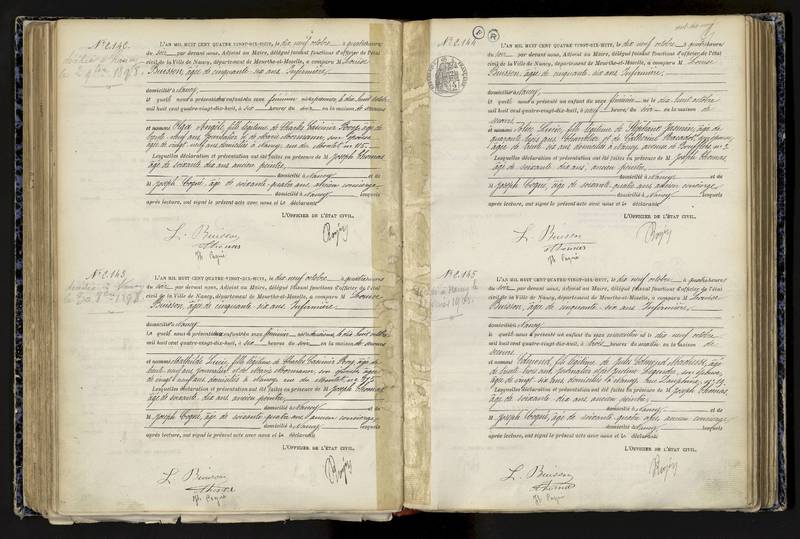 N° 2.140.
L'AN MIL HUIT CENT QUATRE-VINGT-DIX-HUIT, le dix neuf octobre à quatre heures
du soir par devant nous, Adjoint au Maire, délégué faisant fonctions d'officier de l'état
civil de la Ville de Nancy, département de Meurthe-et-Moselle, a comparu M Louise
Buisson, âgée de cinquante six ans Infirmière,
domicilié à Nancy
le quel nous a présenté un enfant du sexe féminin né le dix huit octobre
mil huit cent quatre-vingt-dix-huit, à six heures du soir en la maison de
secours
et nommé Olga Angèle, fille légitime de Charles Casimir âgé de
trente neuf ans journalier et de Marie son épouse
âgée de vingt neuf ans domiciliés à Nancy rue du n° 115
Lesquelles déclaration et présentation ont été faites en présence de M Joseph Thomas
âgé de soixante dix ans ancien peintre
domicilié à Nancy et de
M Joseph Coqué, âgé de soixante-quatre ans ancien concierge
domicilié à Nancy lesquels
après lecture, ont signé le présent acte avec nous et le déclarant
L'OFFICIER DE L'ÉTAT CIVIL,
L. Buisson
Thomas
Jh Coqué
N° 2.143.
L'AN MIL HUIT CENT QUATRE-VINGT-DIX-HUIT, le dix neuf octobre à quatre heures
du soir par devant nous, Adjoint au Maire, délégué faisant fonctions d'officier de l'état
civil de la Ville de Nancy, département de Meurthe-et-Moselle, a comparu M Louise
Buisson, âgée de cinquante six ans Infirmière,
domicilié à Nancy
le quel nous a présenté un enfant du sexe féminin le dix huit octobre
mil huit cent quatre-vingt-dix-huit, à six heures du soir en la maison de
secours
et nommé Mathilde fille légitime de Charles Casimir âgé de
trente neuf ans journalier et de Marie son épouse âgée
de vingt neuf ans domiciliés à Nancy rue du
Lesquelles déclaration et présentation ont été faites en présence de M Joseph Thomas
âgé de soixante dix ans ancien peintre
domicilié à Nancy et de
M Joseph Coqué, âgé de soixante-quatre ans ancien concierge
domicilié à Nancy lesquels
après lecture, ont signé le présent acte avec nous et le déclarant
L'OFFICIER DE L'ÉTAT CIVIL,
L. Buisson
Thomas
Jh Coqué
N° 2.144
L'AN MIL HUIT CENT QUATRE-VINGT-DIX-HUIT, le dix neuf octobre à quatre heures
du soir par devant nous, Adjoint au Maire, délégué faisant fonctions d'officier de l'état
civil de la Ville de Nancy, département de Meurthe-et-Moselle, a comparu M Louise
Buisson, âgée de cinquante six ans Infirmière,
domicilié à Nancy
le quel nous a présenté un enfant du sexe féminin né le dix huit octobre
mil huit cent quatre-vingt-dix-huit, à neuf heures du soir en la maison de
secours
et nommé fille légitime de Stéphane âgé de
quarante ans et de Catherine
âgée de trente six ans domiciliés à Nancy, n° 2
Lesquelles déclaration et présentation ont été faites en présence de M Joseph Thomas
âgé de soixante dix ans, ancien peintre,
domicilié à Nancy et de
M Joseph Coqué, âgé de soixante-quatre ans ancien concierge
domicilié à Nancy lesquels
après lecture, ont signé le présent acte avec nous et le déclarant
L'OFFICIER DE L'ÉTAT CIVIL,
L. Buisson
Thomas
Jh Coqué
N° 2.145
L'AN MIL HUIT CENT QUATRE-VINGT-DIX-HUIT, le dix neuf octobre à quatre heures
du soir par devant nous, Adjoint au Maire, délégué faisant fonctions d'officier de l'état
civil de la Ville de Nancy, département de Meurthe-et-Moselle, a comparu M Louise
Buisson, âgée de cinquante six ans Infirmière,
domicilié à Nancy
le quel nous a présenté un enfant du sexe masculin né le dix neuf octobre
mil huit cent quatre-vingt-dix-huit, à trois heures du matin en la maison de
secours
et nommé Edmond, fils légitime de Jules Edmond âgé
de trente trois ans journalier et de son épouse,
âgée de vingt-six ans domiciliés à Nancy rue n° 19.
Lesquelles déclaration et présentation ont été faites en présence de M Joseph Thomas
âgé de soixante dix ans ancien peintre
domicilié à Nancy et de
M Joseph Coqué, âgé de soixante-quatre ans ancien concierge
domicilié à Nancy lesquels
après lecture, ont signé le présent acte avec nous et le déclarant
L'OFFICIER DE L'ÉTAT CIVIL,
L. Buisson
Thomas
Jh Coqué